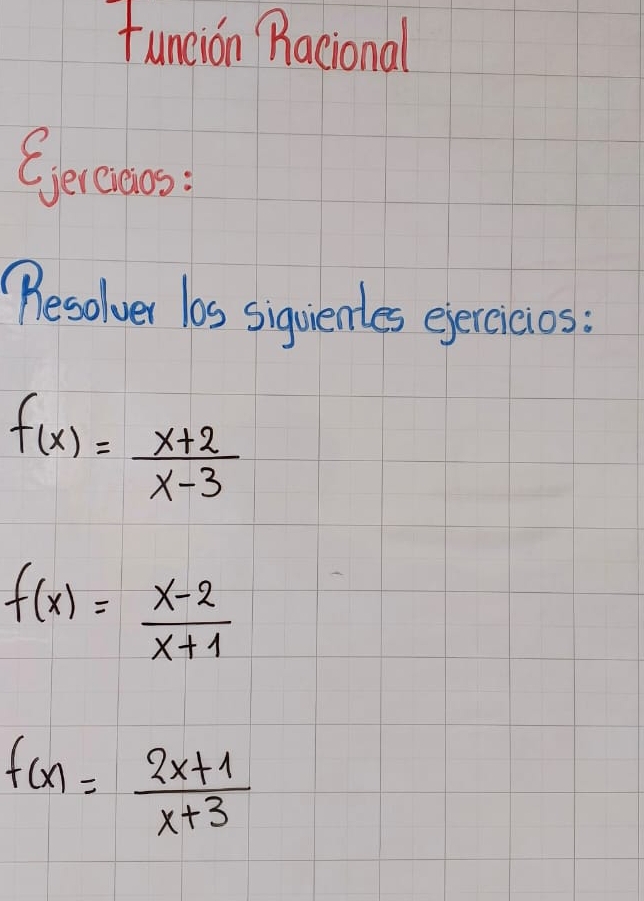 Función Racional
Ejercicios:
Resolver los siguientes ejercicios:
f(x) = x+2
x-3
f(x) = x-2
x+1
f(x) = 2x+1
x+3